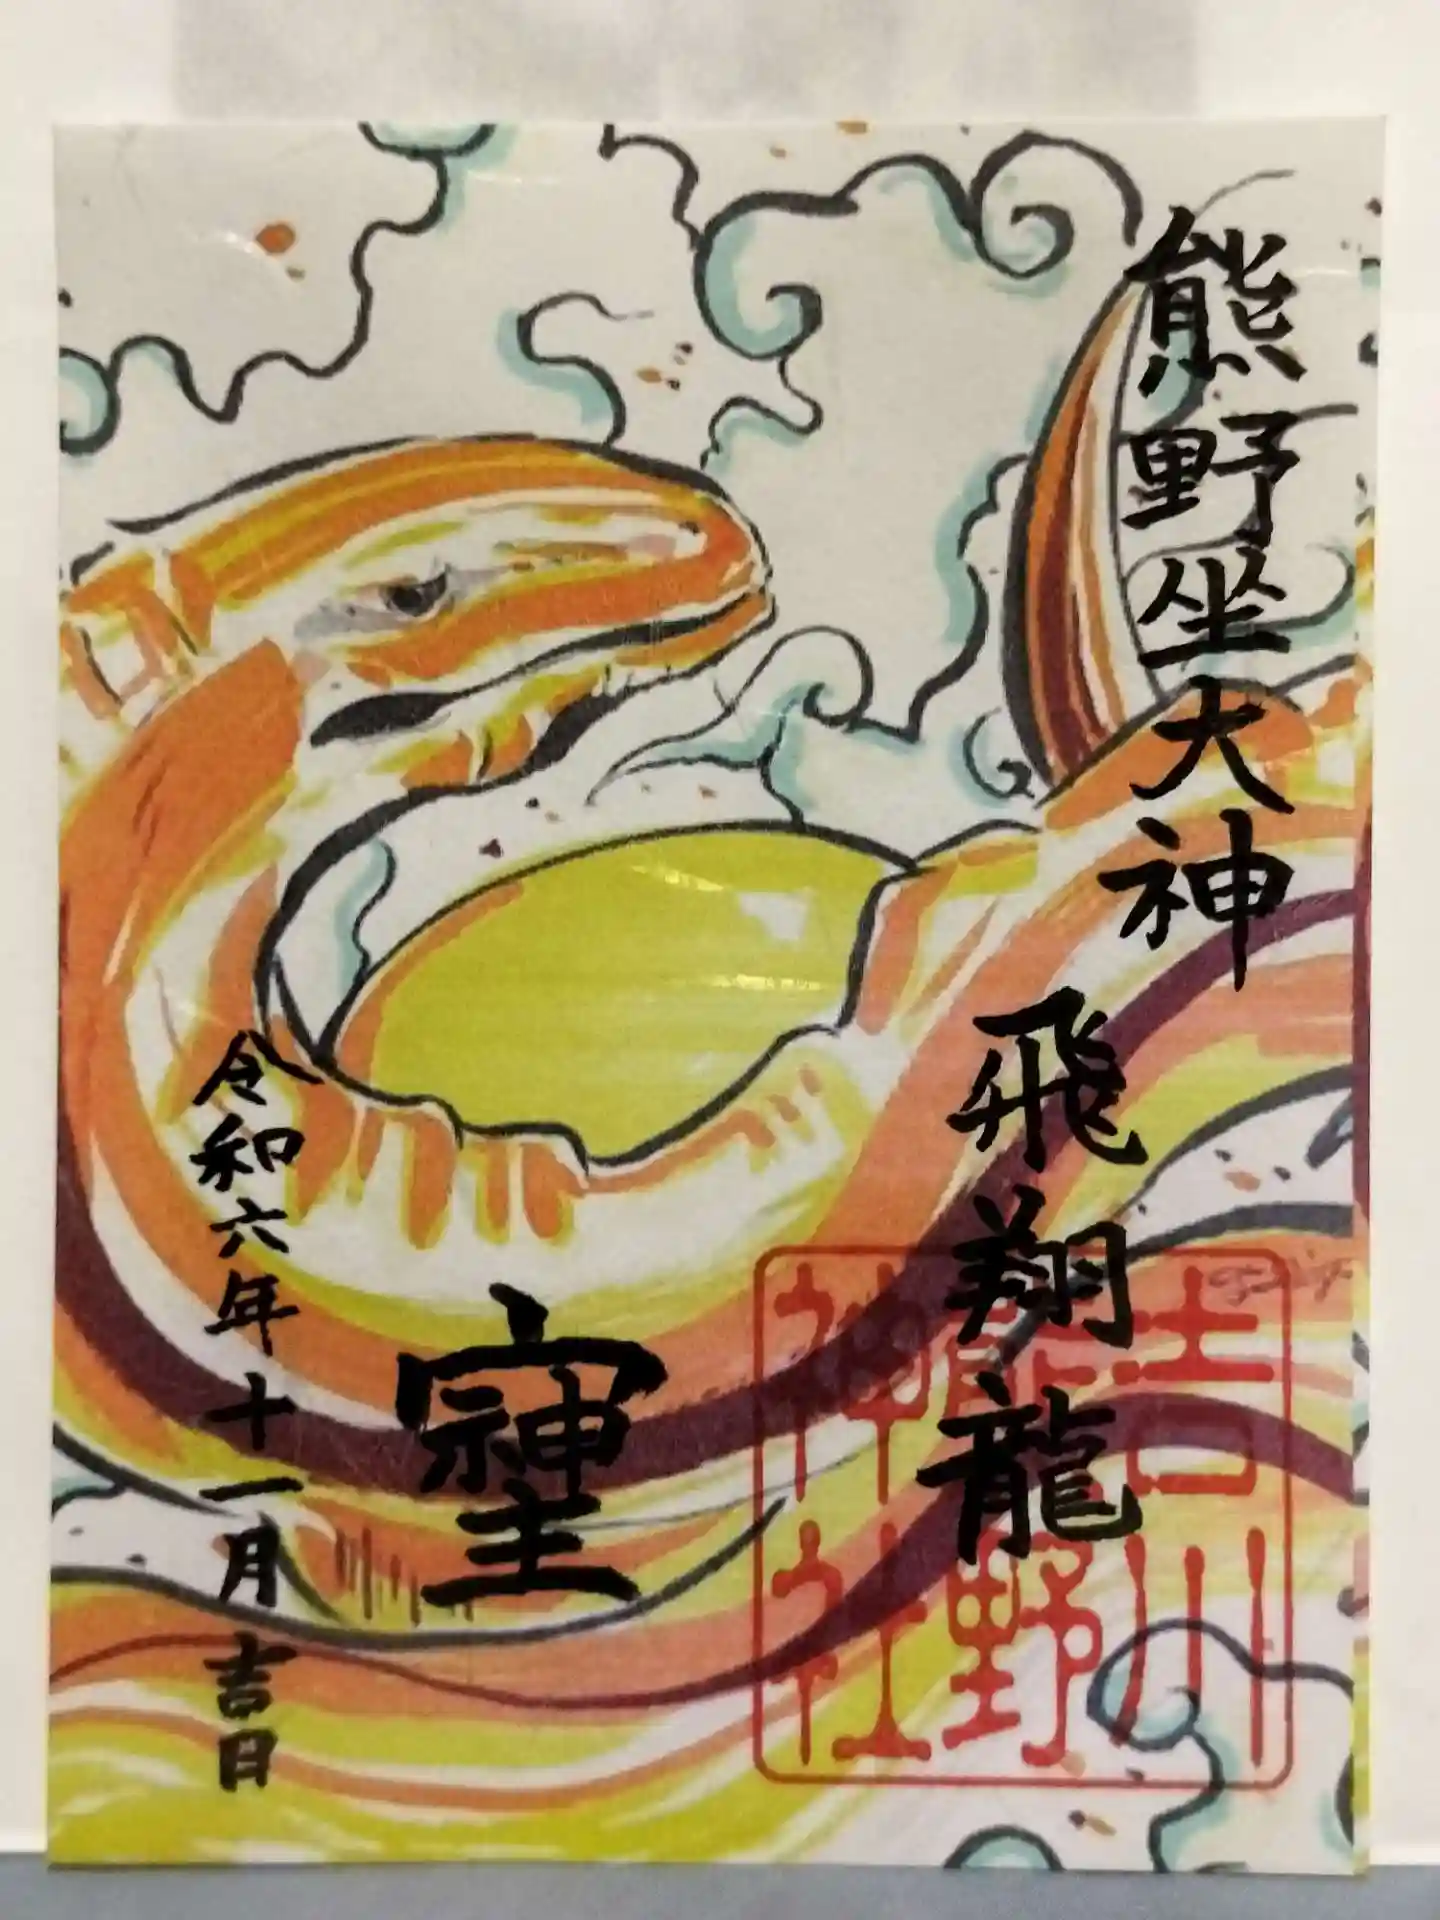 熊野坐大神
飛翔龍
吉川
熊野
神社
令和六年十一月吉日